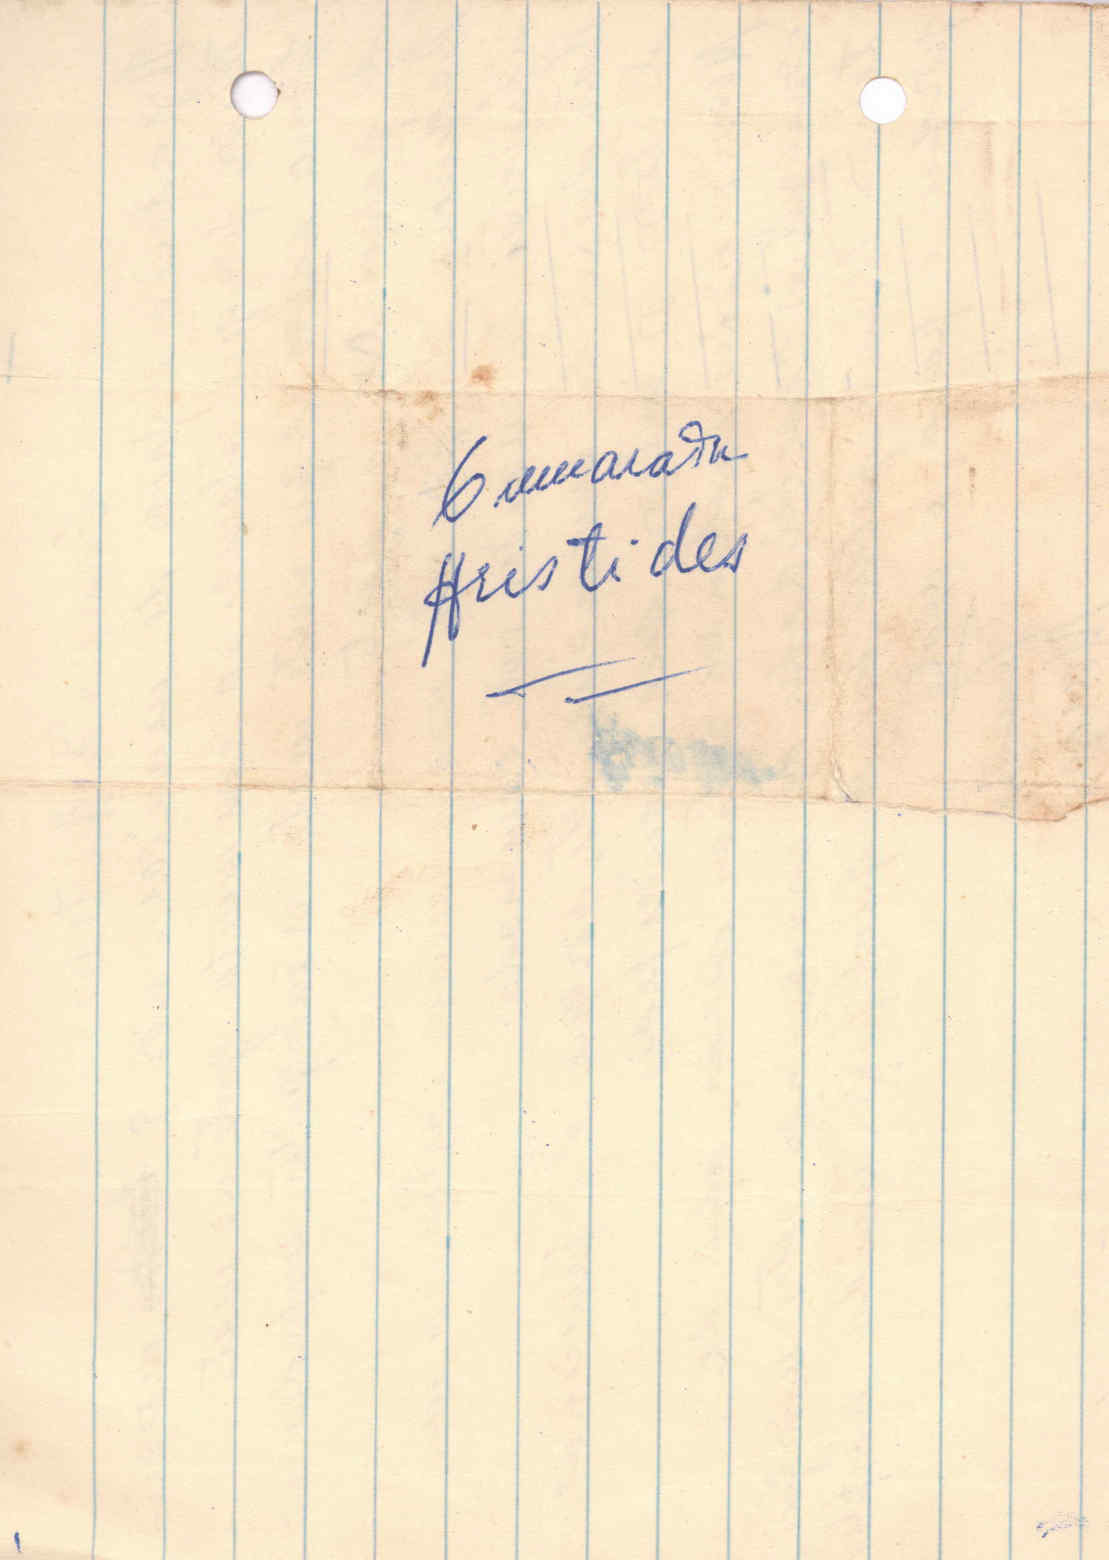 Camarada
Aristides